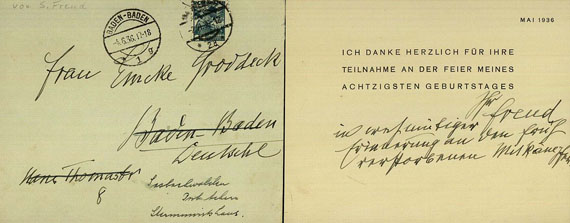 von S. Freud
BADEN-BADEN
-5.6.36.17-18
Frau Emcke Groddeck
Baden-Baden
Deutschl
Hans Thomastr
8
MAI 1936
ICH DANKE HERZLICH FÜR IHRE
TEILNAHME AN DER FEIER MEINES
ACHTZIGSTEN GEBURTSTAGES
Ihr Freud
in wehmütiger
Erinnerung an den früh
verstorbenen Mitkämpfer